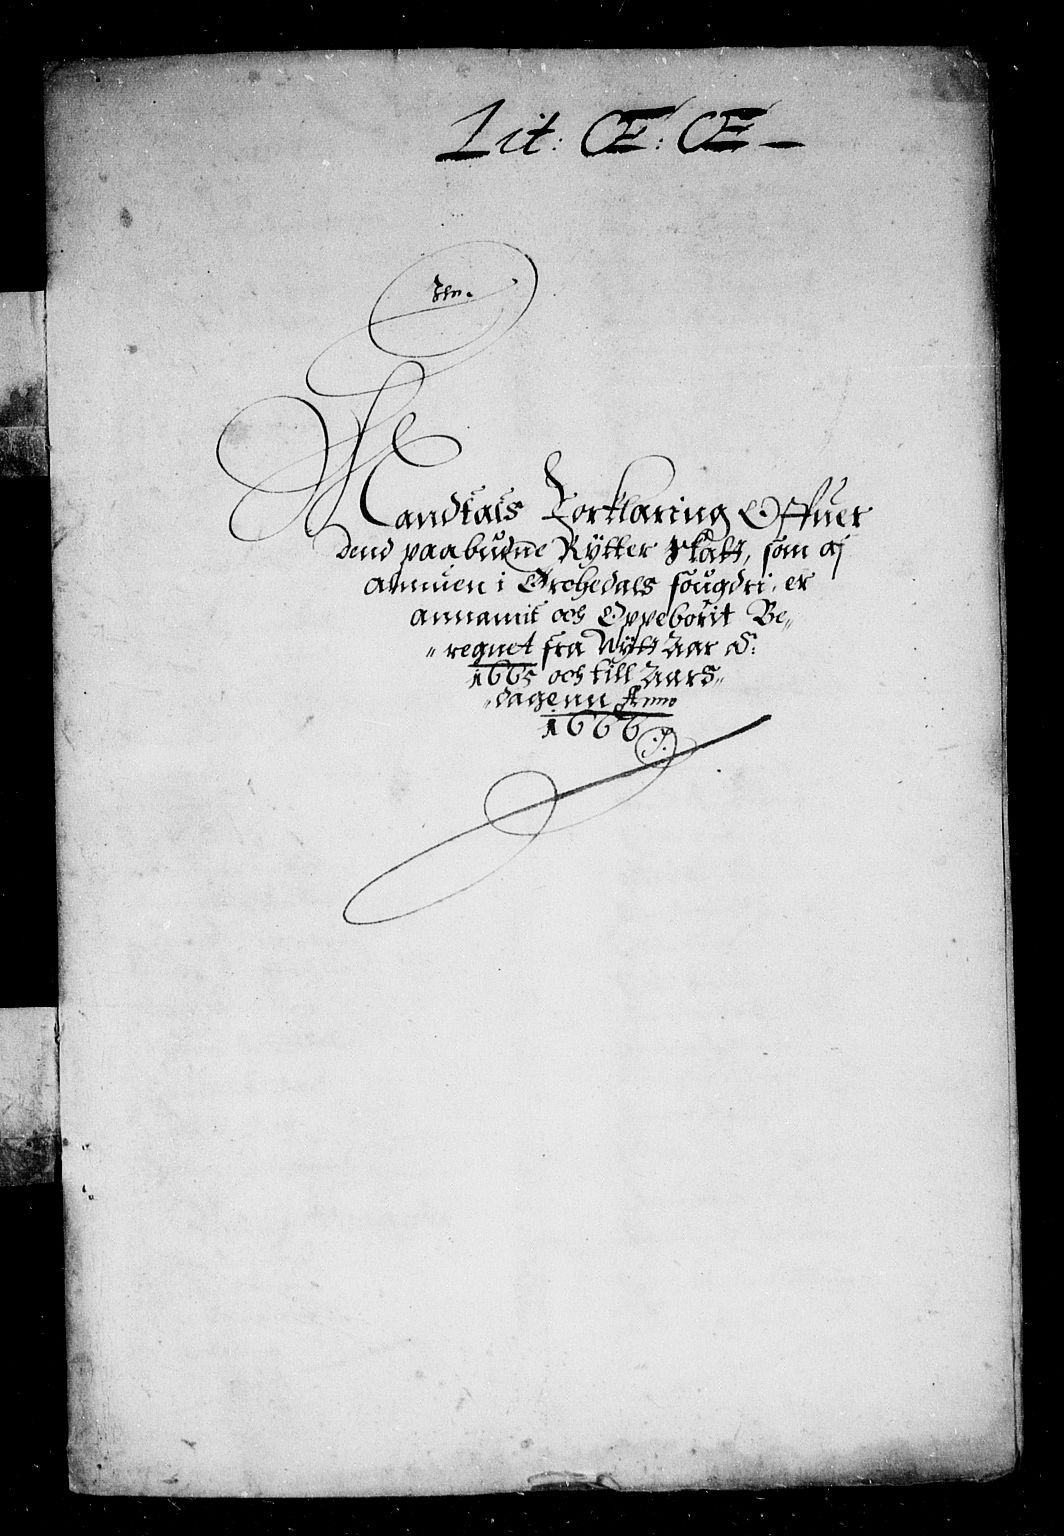 Lit: Œ: Œ –
Mandtals Forklaring Offuer
dend paabudne Rÿtter Skatt, som af
Almuen i Orchedals fougdri, er
annamit och Oppeborit Be„
„regnet fra Nÿtt Aar Aº:
1665 och till Aars„
„dagenn Anno
1666